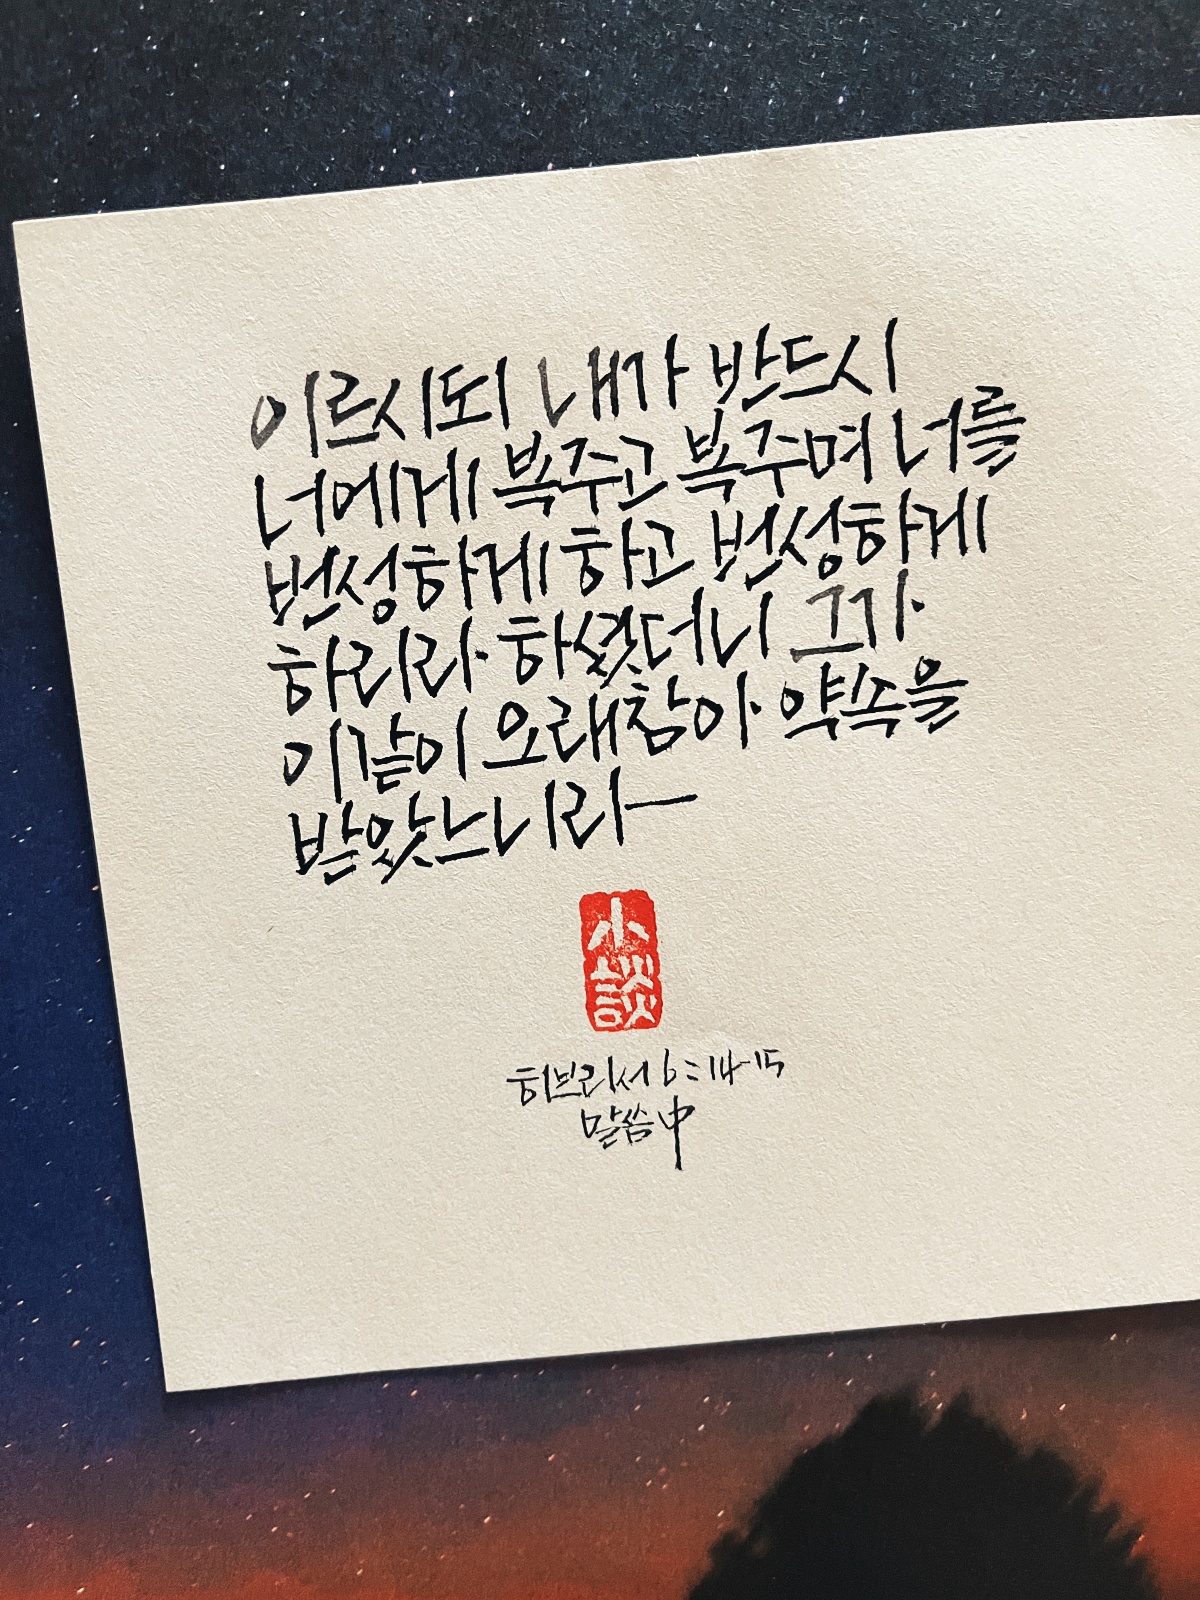 이르시되 내가 반드시
너에게 복주고 복주며 너를
번성하게 하고 번성하게
하리라 하셨더니 그가
이같이 오래참아 약속을
받았느니라
小
談
히브리서 6:14-15
말씀中